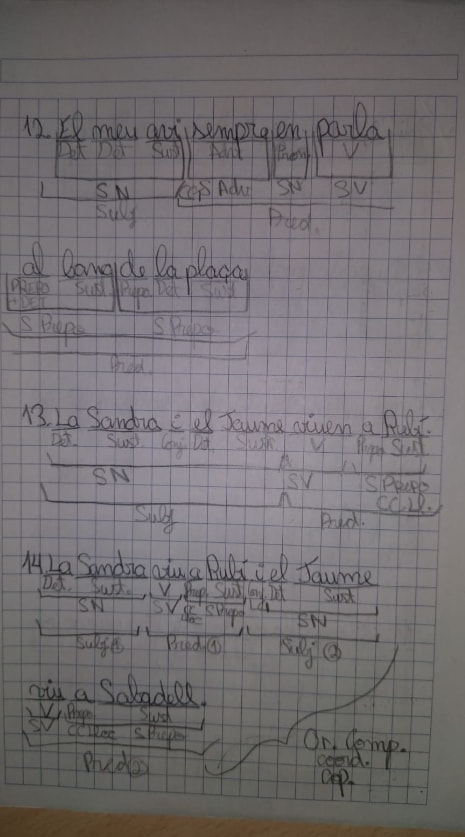 12. El meu avi sempre en parla
Det Det Sust Adv Pron V
SN S Adv SN SV
Subj Pred.
al banc de la plaça
PREPO Sust Prepo Det Sust
+ DET
S Prepo S Prepo
Pred.
13. La Sandra i el Jaume viuen a Rubí.
Det. Sust Conj Det Sust V Prepo Sust
SN SV S PREPO
CC.Ll.
Subj Pred.
14. La Sandra viu a Rubí i el Jaume
Det. Sust. V Prep Sust Conj Det Sust
SN SV S Prepo SN
Subj ① Pred ① Subj ②
viu a Sabadell.
V Prepo Sust
SV CC Lloc S Prepo
Pred ② Or. Comp.
coord.
Cop.